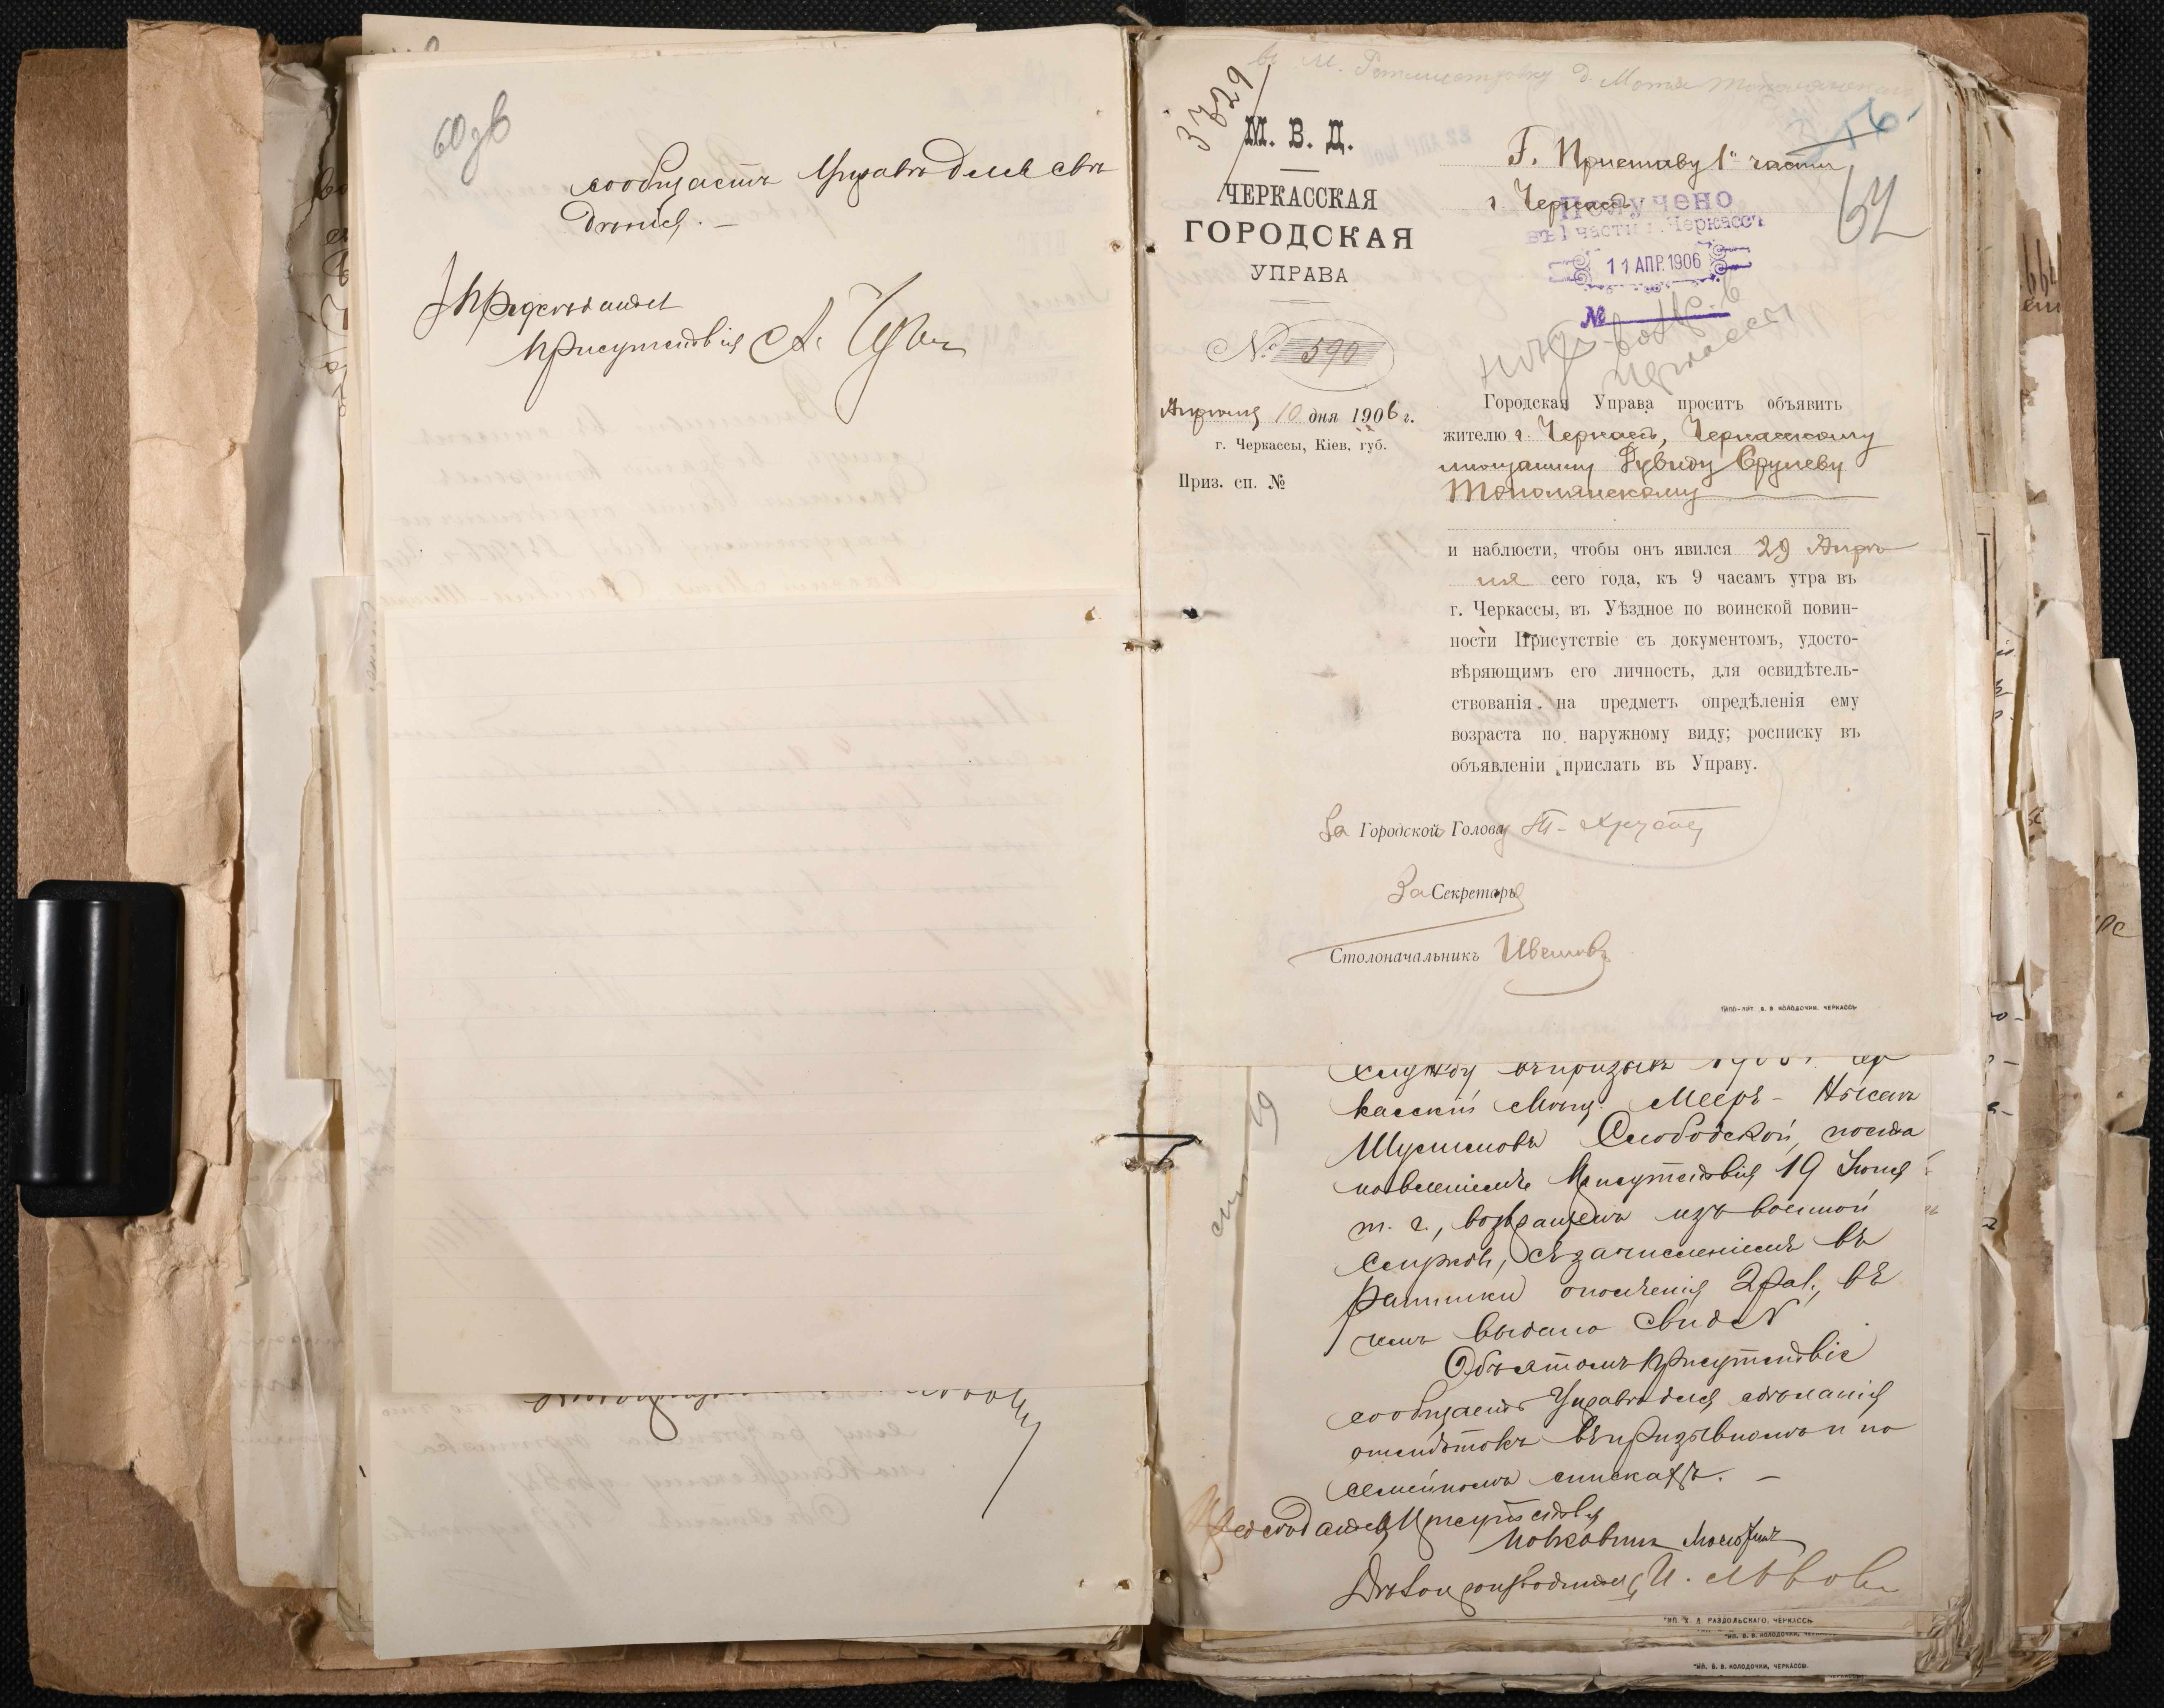 60 зв
сообщаетъ Управѣ для свѣ
дѣнія. —
Предсѣдатель
Присутствія А.
3729
М. В. Д.
ЧЕРКАССКАЯ
ГОРОДСКАЯ
УПРАВА
№ 590
Апрѣля 10 дня 1906 г.
г. Черкассы, Кіев. губ.
Приз. сп. №
Г. Приставу 1й части
г. Черкассъ
Получено
въ 1 части г. Черкассъ
11 АПР. 1906
№
Городская Управа проситъ объявить
жителю г. Черкассъ, Черкасскому
мѣщанину Дувиду Срулеву
Тополянскому
и наблюсти, чтобы онъ явился 29 Апрѣ
ля сего года, къ 9 часамъ утра въ
г. Черкассы, въ Уѣздное по воинской повин-
ности Присутствіе съ документомъ, удосто-
вѣряющимъ его личность, для освидѣтель-
ствованія на предметъ опредѣленія ему
возраста по наружному виду; росписку въ
объявленіи прислать въ Управу.
За Городской Голова
За Секретаръ
Столоначальникъ
ТИПО-ЛИТ. В. В. КОЛОДОЧКИ, ЧЕРКАССЫ
службу въ призывъ
касскій мѣщ. Мееръ-
Шулимовъ Слободской, поста
новленіемъ Присутствія 19 Іюня
т. г., возвращенъ изъ военной
службы, съ зачисленіемъ въ
ратники ополченія 2 раз., въ
чемъ выдано свид. №
Объ этомъ Присутствіе
сообщаетъ Управѣ для сдѣланія
отмѣтокъ въ призывномъ и по
семейномъ спискахъ. —
Предсѣдатель Присутствія
Полковникъ
Дѣлопроизводитель И. Львовъ
ТИП. Х. Д. РАЗДОЛЬСКАГО, ЧЕРКАССЫ
ТИП. В. В. КОЛОДОЧКИ, ЧЕРКАССЫ